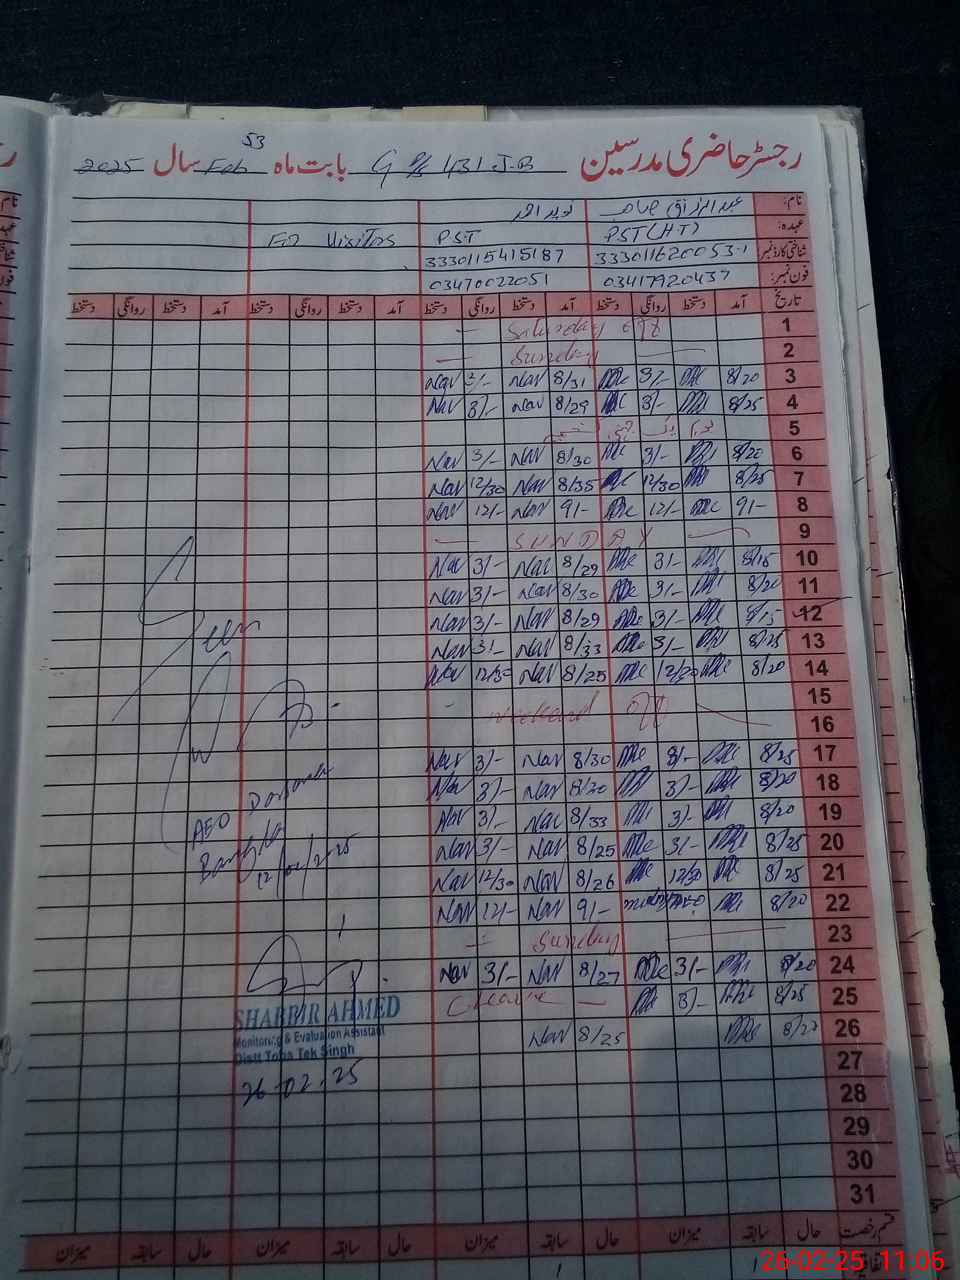 53
رجسٹر حاضری مدرسین G P/S 431 J-B بابت ماہ Feb سال 2025
نام: عبدالرزاق نوید احمد
عہدہ: PST(H-T) PST For Visitors
شناختی کارڈ نمبر 3330115415187
فون نمبر: 03417920437 03470022051
تاریخ آمد دستخط روانگی دستخط آمد دستخط روانگی دستخط آمد دستخط روانگی دستخط آمد دستخط روانگی دستخط
1 Saturday
2 Sunday
3 8/20 3/- 8/31 Nav Nav
4 8/25 3/- 8/29 Nav 3/- Nav
5
6 8/20 3/- 8/30 Nav 3/- Nav
7 8/25 12/30 8/35 Nav 12/30 Nav
8 9/- 12/- 9/- Nav 12/- Nav
9 SUNDAY
10 8/15 3/- 8/29 Nav 3/- Nav
11 8/20 3/- 8/30 Nav 3/- Nav
12 8/15 3/- 8/29 Nav 3/- Nav
13 8/25 3/- 8/33 Nav 3/- Nav
14 8/20 12/30 8/25 Nav 12/30 Nav
15
16 weekend
17 8/25 3/- 8/30 Nav 3/- Nav
18 8/20 3/- 8/30 Nav 3/- Nav
19 8/20 3/- 8/33 Nav 3/- Nav
20 8/25 3/- 8/25 Nav 3/- Nav
21 8/25 12/30 8/26 Nav 12/30 Nav
22 8/20 9/- Nav 12/- Nav
23 Sunday
24 8/20 3/- 8/27 Nav 3/- Nav
25 8/25 3/- C leave
26 8/27 8/25 Nav
27
28
29
30
31
Seen
AEO
12/02/2025
SHABBIR AHMED
Monitoring & Evaluation Assistant
Distt Toba Tek Singh
26-02-25
قسم رخصت حال سابقہ میزان حال سابقہ میزان حال سابقہ میزان حال سابقہ میزان
26-02-25 11:06